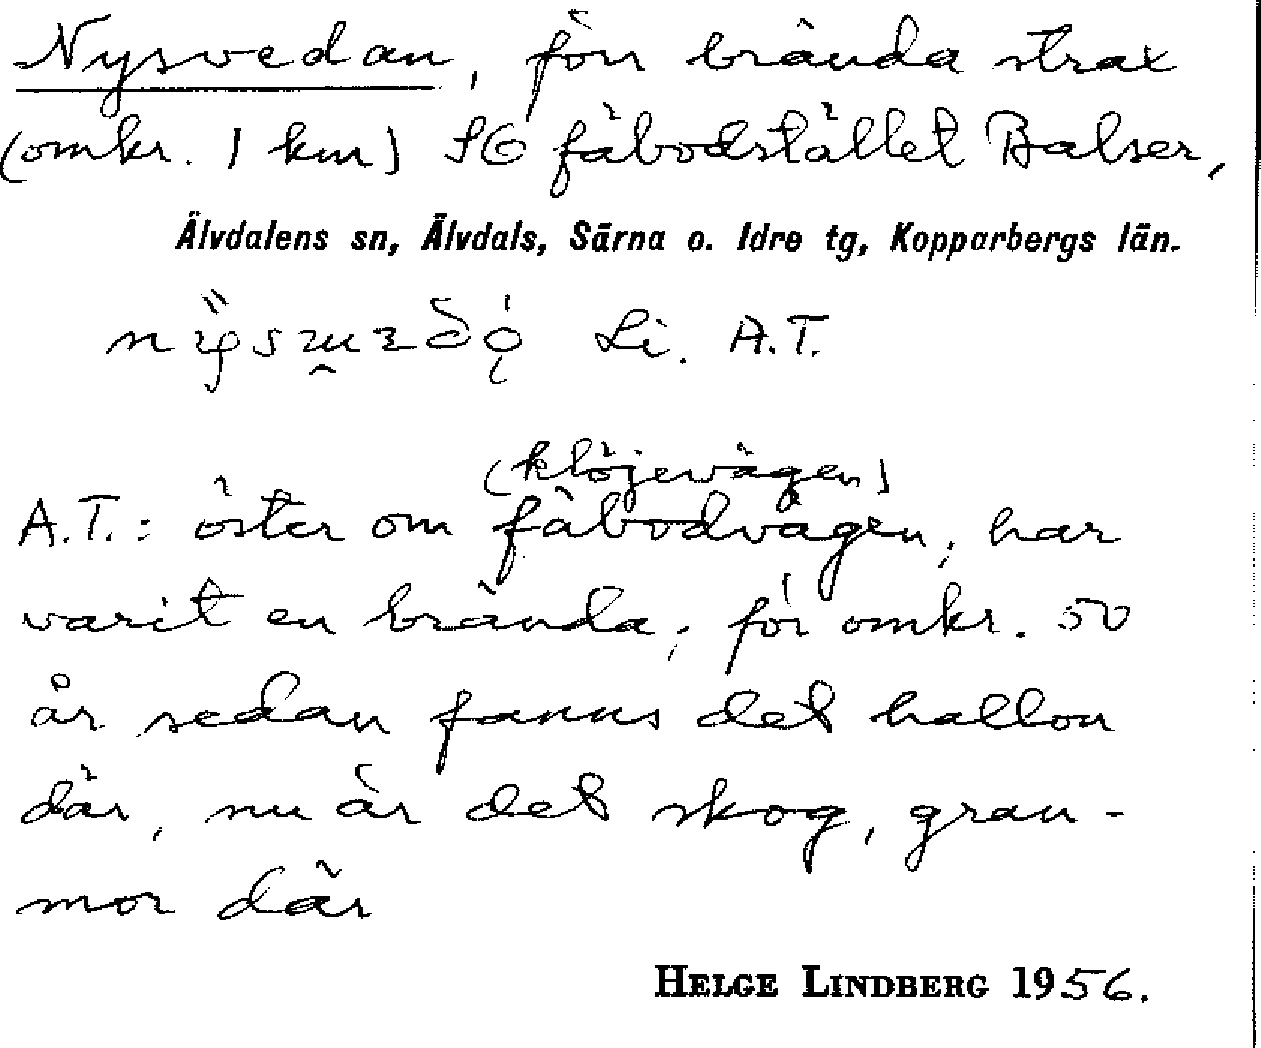 Nysvedan, förr brända strax
(omkr. 1 km) SO fäbodstället Balser,
Älvdalens sn, Älvdals, Särna o. Idre tg, Kopparbergs län.
Li. A.T.
(klöjevägen)
A.T.: öster om fäbodvägen; har
varit en brända; för omkr. 50
år sedan fanns det hallon
där, nu är det skog, gran-
mor där
HELGE LINDBERG 1956.